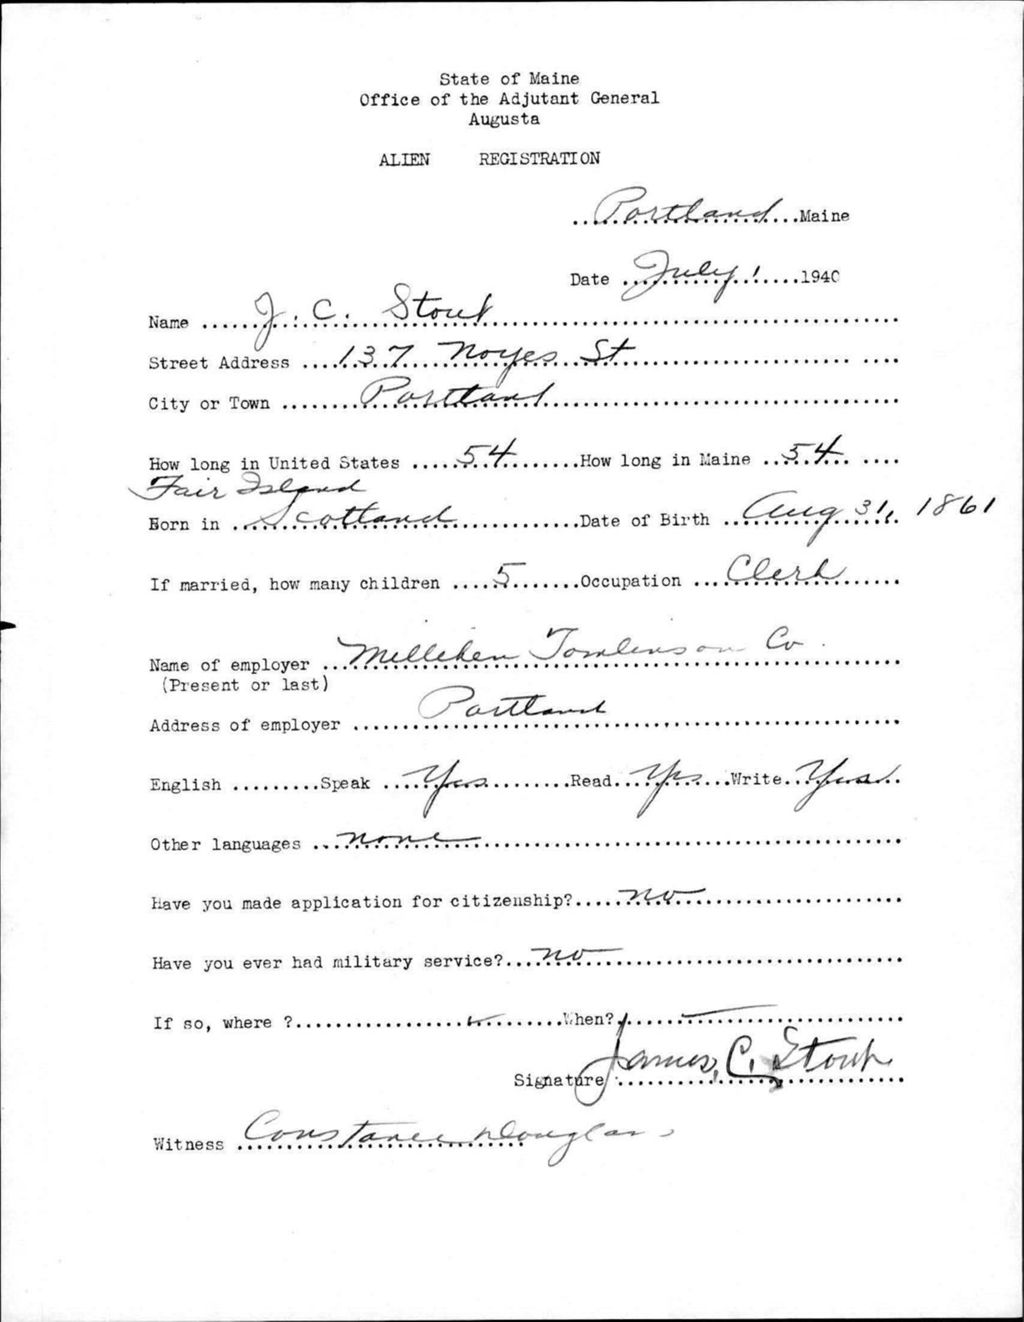 State of Maine
Office of the Adjutant General
Augusta
ALIEN REGISTRATION
Portland Maine
Date July 1 1940
Name J. C. Stout
Street Address 137 Noyes St
City or Town Portland
How long in United States 54 How long in Maine 54
Fair Island
Born in Scotland Date of Birth Aug 31, 1861
If married, how many children 5 Occupation Clerk
Name of employer Milliken Tomlinson Co.
(Present or last)
Address of employer Portland
English Speak Yes Read Yes Write Yes
Other languages none
Have you made application for citizenship? no
Have you ever had military service? no
If so, where ? When?
Signature James C. Stout
Witness Constance Douglas